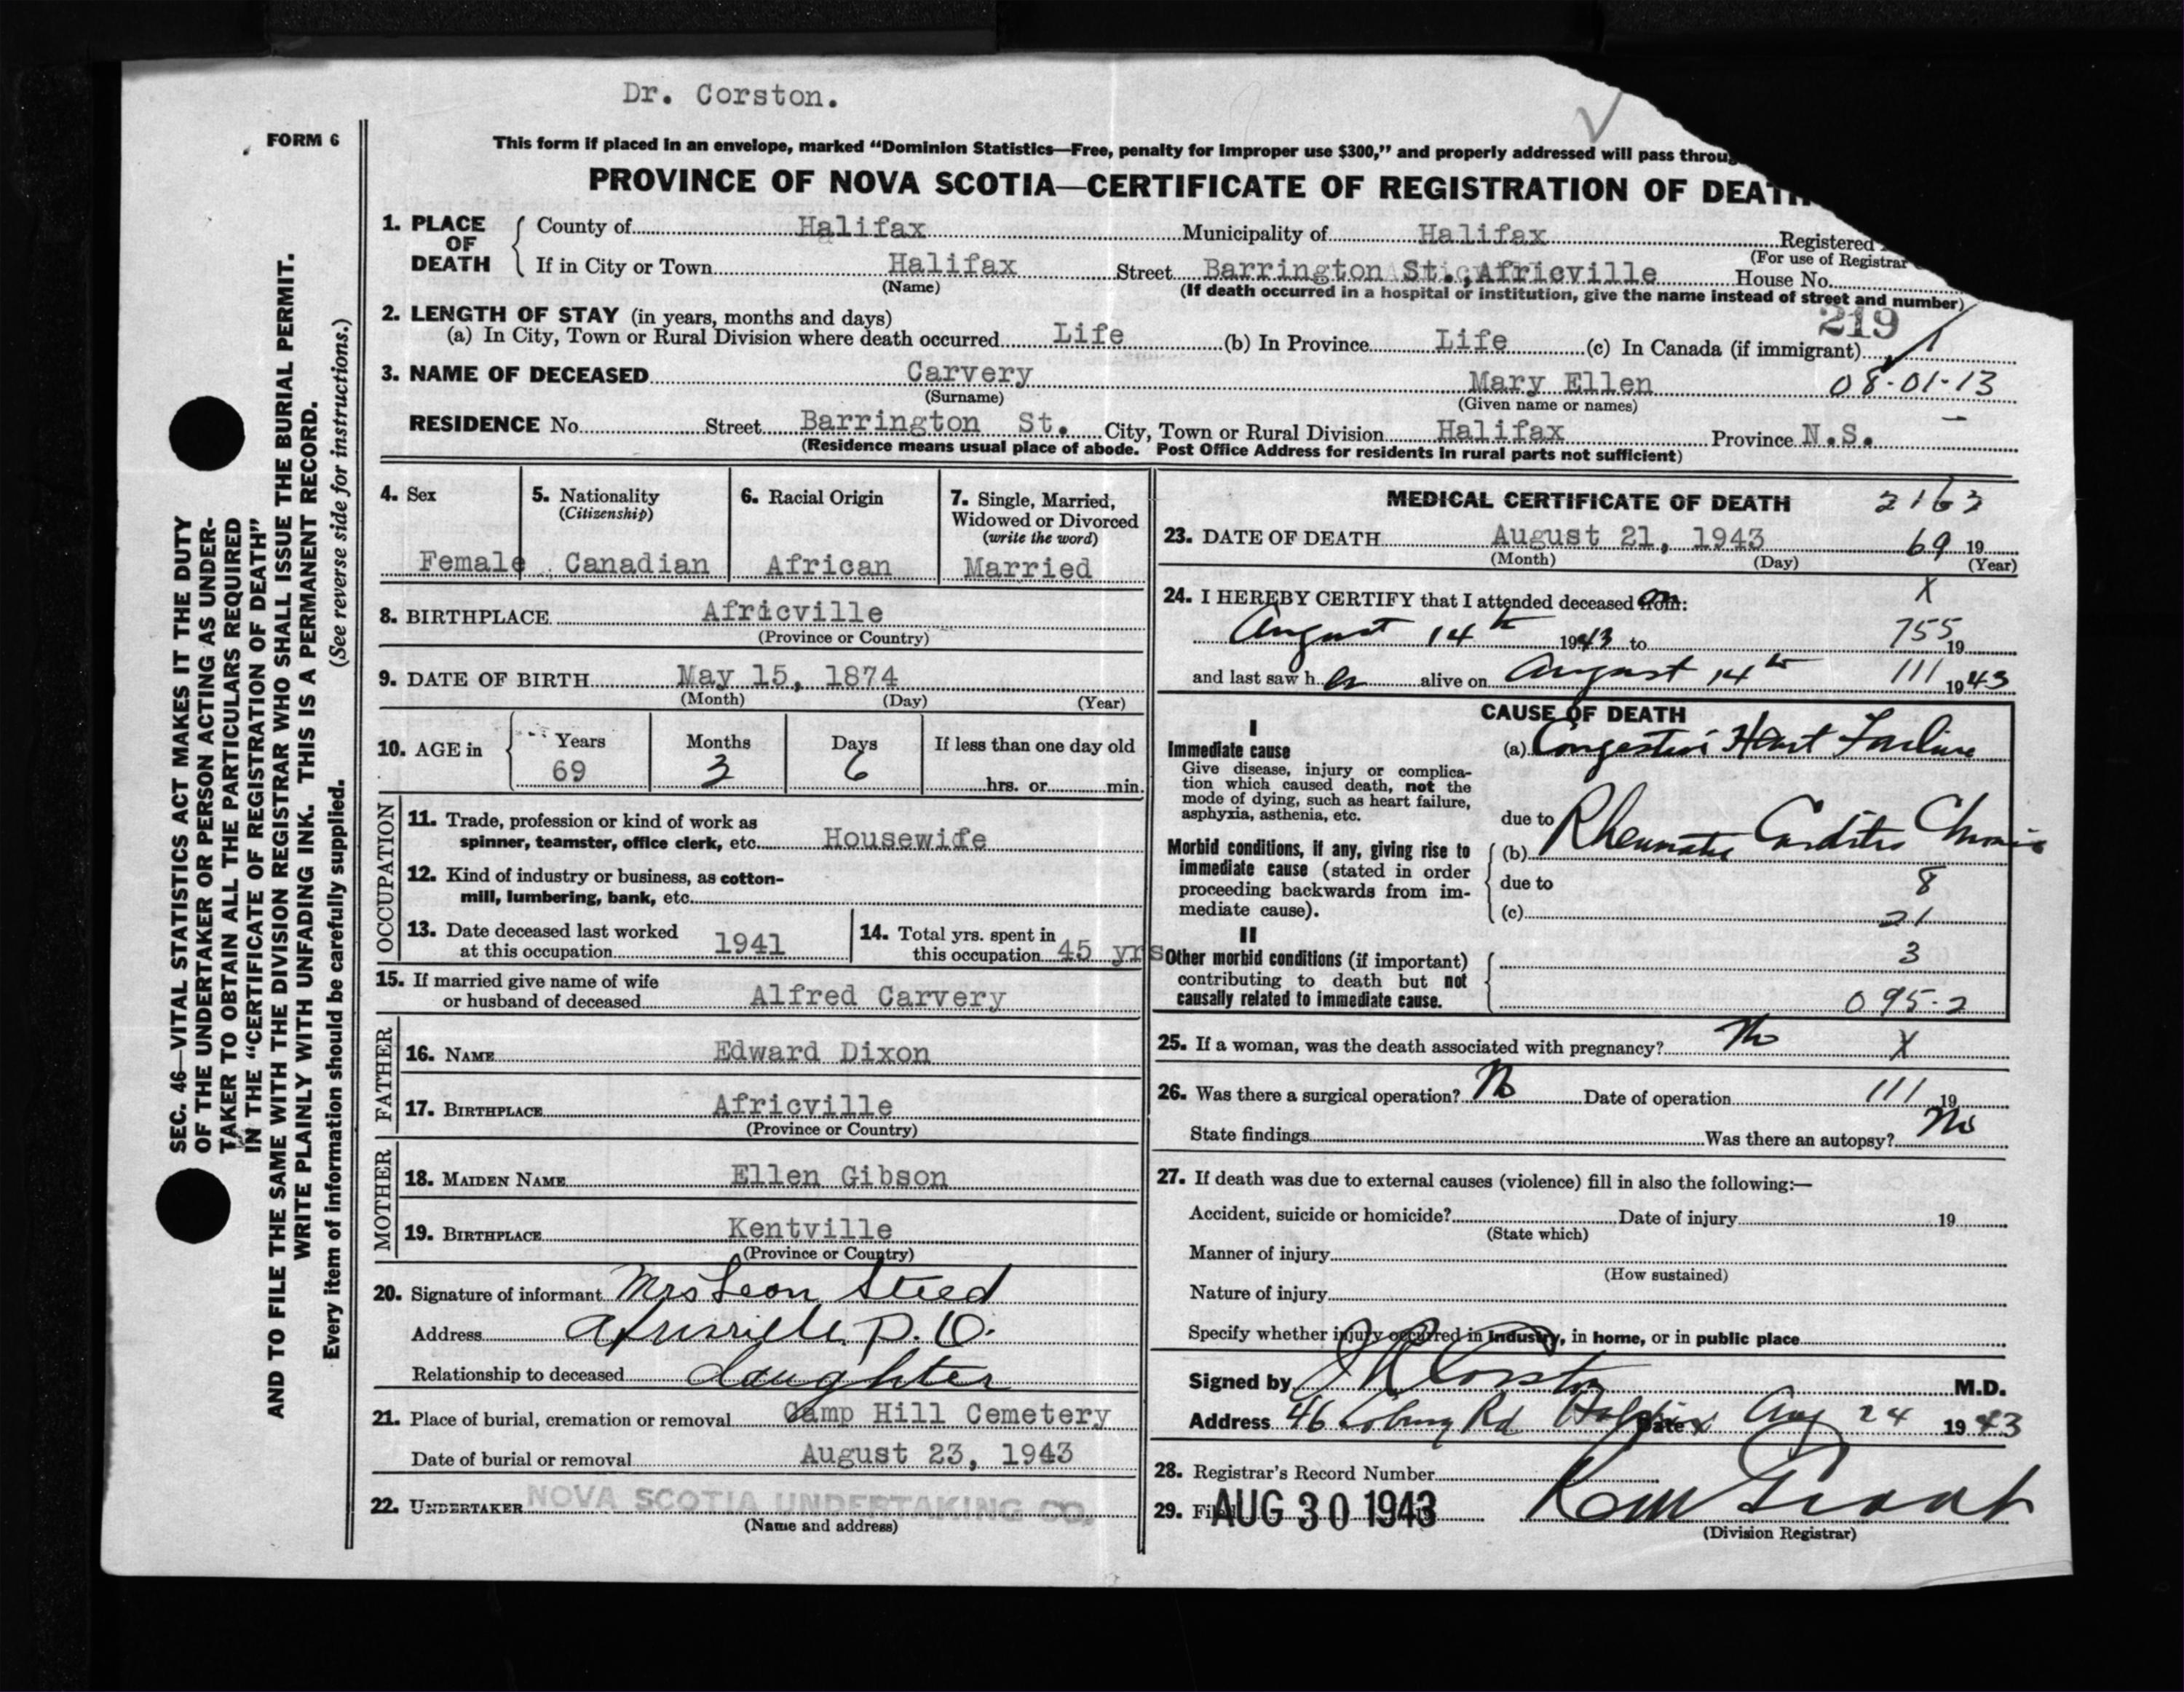 Dr. Corston.
FORM 6
This form if placed in an envelope, marked “Dominion Statistics—Free, penalty for improper use $300,” and properly addressed will pass
PROVINCE OF NOVA SCOTIA—CERTIFICATE OF REGISTRATION OF
1. PLACE OF DEATH
County of Halifax Municipality of Halifax Registered
(For use of Registrar
If in City or Town Halifax Street Barrington St., Africville House No.
(Name) (If death occurred in a hospital or institution, give the name instead of street and number)
2. LENGTH OF STAY (in years, months and days)
219
(a) In City, Town or Rural Division where death occurred Life (b) In Province Life (c) In Canada (if immigrant)
3. NAME OF DECEASED Carvery Mary Ellen 08-01-13
(Surname) (Given name or names)
RESIDENCE No. Street Barrington St. City, Town or Rural Division Halifax Province N.S.
(Residence means usual place of abode. Post Office Address for residents in rural parts not sufficient)
4. Sex
Female
5. Nationality
(Citizenship)
Canadian
6. Racial Origin
African
7. Single, Married,
Widowed or Divorced
(write the word)
Married
8. BIRTHPLACE Africville
(Province or Country)
9. DATE OF BIRTH May 15, 1874
(Month) (Day) (Year)
10. AGE in
Years Months Days If less than one day old
69 3 6 hrs. or min.
OCCUPATION
11. Trade, profession or kind of work as
spinner, teamster, office clerk, etc. Housewife
12. Kind of industry or business, as cotton-
mill, lumbering, bank, etc.
13. Date deceased last worked
at this occupation 1941
14. Total yrs. spent in
this occupation 45 yrs
15. If married give name of wife
or husband of deceased Alfred Carvery
FATHER
16. NAME Edward Dixon
17. BIRTHPLACE Africville
(Province or Country)
MOTHER
18. MAIDEN NAME Ellen Gibson
19. BIRTHPLACE Kentville
(Province or Country)
20. Signature of informant Mrs Leon Steed
Address Africville P.O.
Relationship to deceased daughter
21. Place of burial, cremation or removal Camp Hill Cemetery
Date of burial or removal August 23, 1943
22. UNDERTAKER NOVA SCOTIA UNDERTAKING CO.
(Name and address)
MEDICAL CERTIFICATE OF DEATH 2163
23. DATE OF DEATH August 21, 1943 69 19
(Month) (Day) (Year)
24. I HEREBY CERTIFY that I attended deceased on: X
August 14th 1943 to 755 19
and last saw her alive on August 14th 111 1943
CAUSE OF DEATH
I
Immediate cause (a) Congestive Heart Failure
Give disease, injury or complica-
tion which caused death, not the
mode of dying, such as heart failure,
asphyxia, asthenia, etc.
due to
Morbid conditions, if any, giving rise to
immediate cause (stated in order
proceeding backwards from im-
mediate cause).
(b) Rheumatic Carditis Chronic
due to 8
(c) 21
II
Other morbid conditions (if important)
contributing to death but not
causally related to immediate cause.
3
095-2
25. If a woman, was the death associated with pregnancy? No X
26. Was there a surgical operation? No Date of operation 111 19
State findings Was there an autopsy? No
27. If death was due to external causes (violence) fill in also the following:—
Accident, suicide or homicide? Date of injury 19
(State which)
Manner of injury
(How sustained)
Nature of injury
Specify whether injury occurred in industry, in home, or in public place
Signed by Corston M.D.
Address 46 Coburg Rd Halifax Date Aug 24 1943
28. Registrar's Record Number
29. Filed AUG 30 1943
(Division Registrar)
SEC. 46—VITAL STATISTICS ACT MAKES IT THE DUTY
OF THE UNDERTAKER OR PERSON ACTING AS UNDER-
TAKER TO OBTAIN ALL THE PARTICULARS REQUIRED
IN THE “CERTIFICATE OF REGISTRATION OF DEATH”
AND TO FILE THE SAME WITH THE DIVISION REGISTRAR WHO SHALL ISSUE THE BURIAL PERMIT.
WRITE PLAINLY WITH UNFADING INK. THIS IS A PERMANENT RECORD.
Every item of information should be carefully supplied. (See reverse side for instructions.)